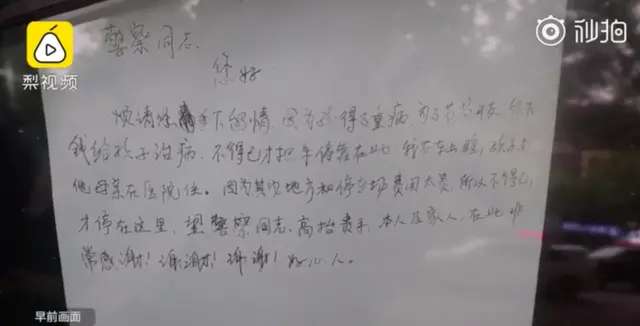 梨视频
秒拍
警察同志
您好
烦请您手下留情，因为孩子得了重病，为了节约
钱给孩子治病，不得已才把车停靠在此，我在车上睡，孩子与
他母亲在医院住。因为其它地方和停车场费用太贵，所以不得已
才停在这里，望警察同志，高抬贵手，本人及家人，在此非
常感谢！谢谢！谢谢！好心人。
早前画面